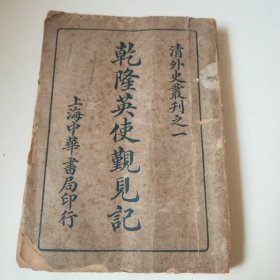 清外史叢刊之一
乾隆英使覲見記
上海中華書局印行